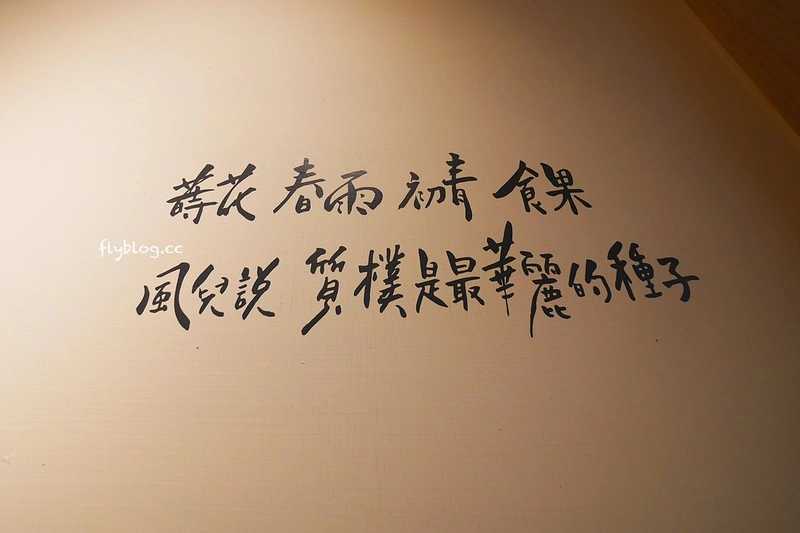 蒔花 春雨 初青 食果
flyblog.cc
風兒說 質樸是最華麗的種子